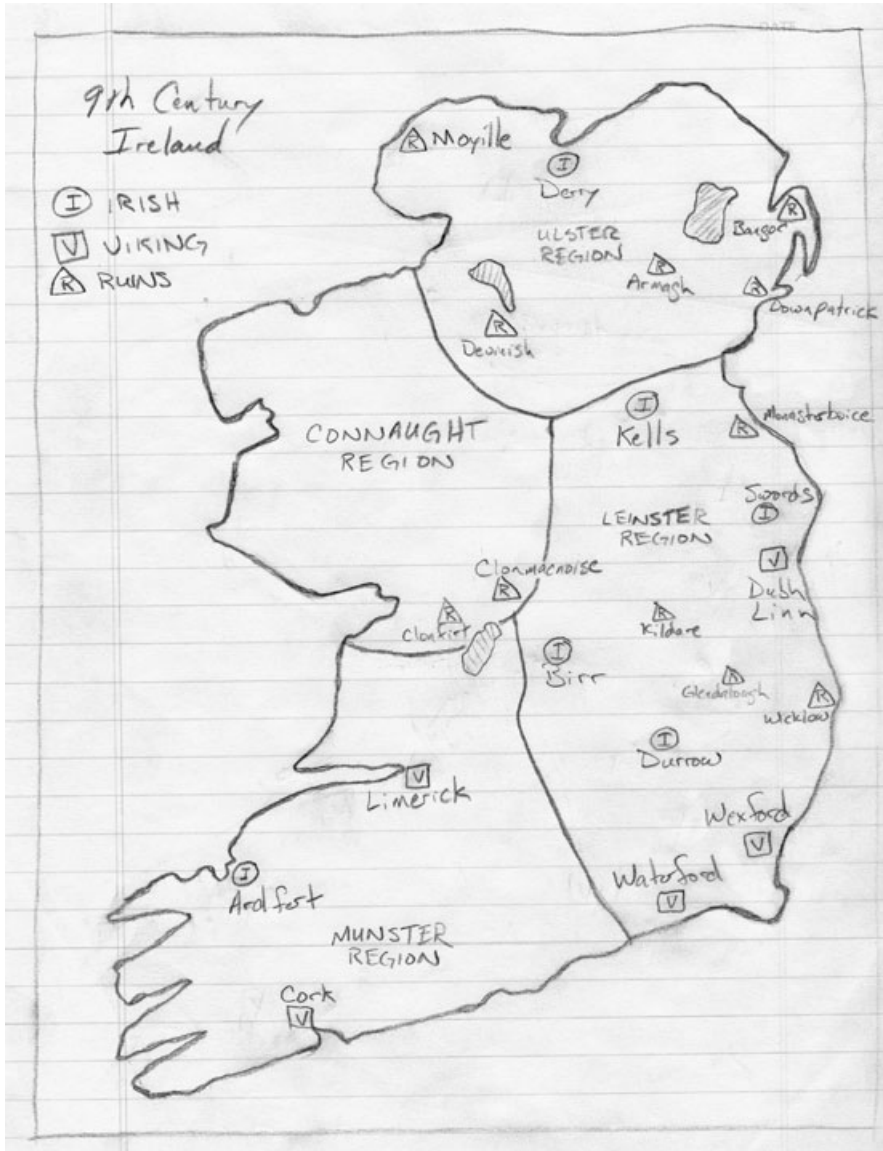 DATE
9th Century
Ireland
I IRISH
V VIKING
R RUINS
R Moyille
I
Derry
ULSTER
REGION
R
Bangor
R
Armagh
R
Downpatrick
R
Devinish
CONNAUGHT
REGION
I
Kells
R
Monasterboice
Swords
I
LEINSTER
REGION
V
Dubh
Linn
Clonmacnoise
R
R
R
Kildare
I
Birr
R
Glendalough
R
Wicklow
I
Durrow
V
Limerick
Wexford
V
Waterford
V
I
Ardfert
MUNSTER
REGION
Cork
V